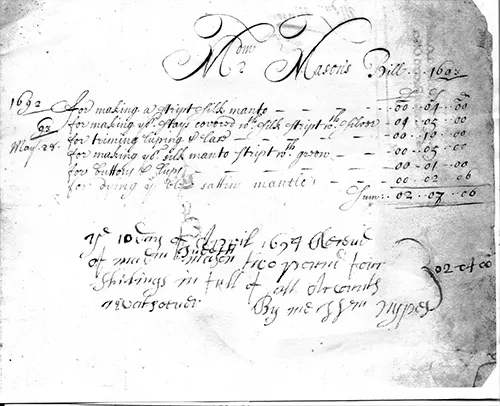 Mdm
Mr Masons Bill . . 1693
1692 for making a stript silk manto — — — 00 . 04 . 00
for making yr. stays covered wth. silk stript wth. silver 04 . 05 . 00
93 for triming
May. 28. for making yr. silk manto stript wth. — 00 . 05 . 00
for buttons & — — 00 . 01 . 00
for doing ye sattin mantle — 00 . 02 . 06
Sum: 02 . 07 . 06
ye 10 day of Aprill 1694 Received
of madm mason two pound four
shillings in full of all Accounts 02 04 00
whatsoever By me